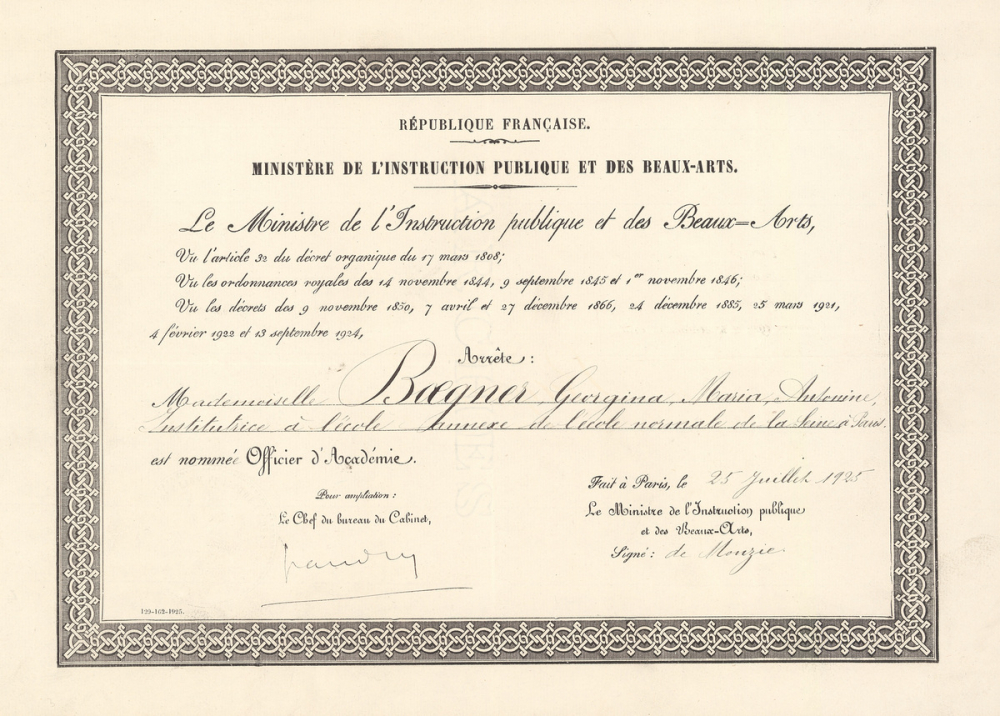 RÉPUBLIQUE FRANÇAISE.
MINISTÈRE DE L'INSTRUCTION PUBLIQUE ET DES BEAUX-ARTS.
Le Ministre de l'Instruction publique et des Beaux=Arts,
Vu l'article 32 du décret organique du 17 mars 1808;
Vu les ordonnances royales des 14 novembre 1844, 9 septembre 1845 et 1er novembre 1846;
Vu les décrets des 9 novembre 1850, 7 avril et 27 décembre 1866, 24 décembre 1885, 25 mars 1921,
4 février 1922 et 13 septembre 1924,
Arrête :
Mademoiselle Bœgner, Georgina, Maria, Antonine,
Institutrice à l'école annexe de l'école normale de la Seine à Paris.
est nommée Officier d'Académie.
Fait à Paris, le 25 Juillet 1925
Pour ampliation :
Le Chef du bureau du Cabinet,
Le Ministre de l'Instruction publique
et des Beaux-Arts,
Signé : de Monzie
129-162-1925.